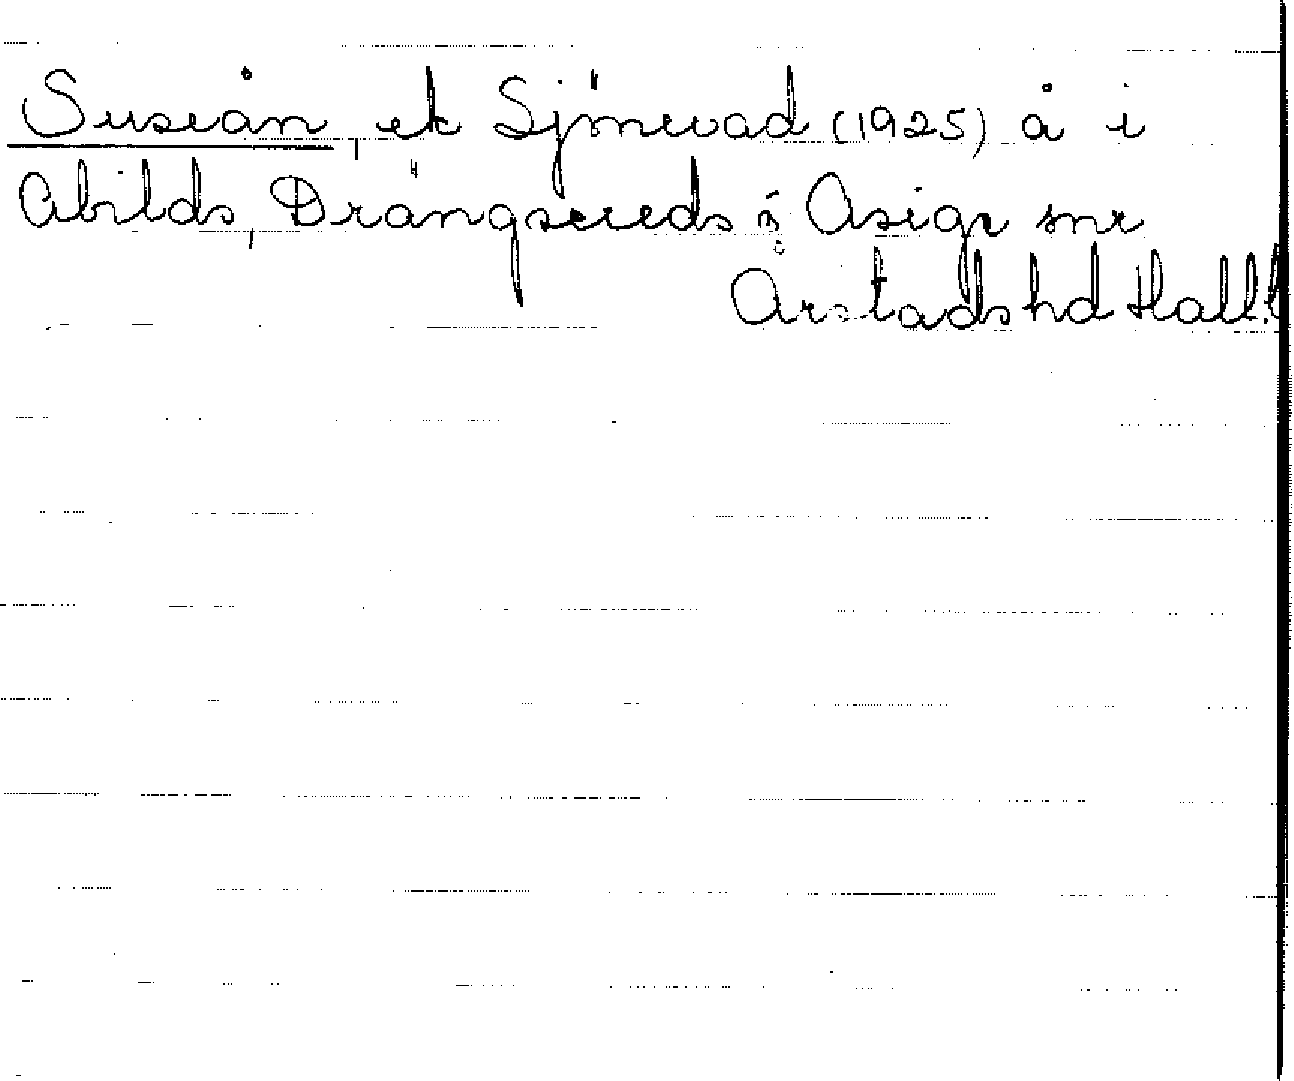 Suseån, ek Sjönevad (1925) å i
Abilds, Drängsereds o Asige snr
Årstads hd Hall.l